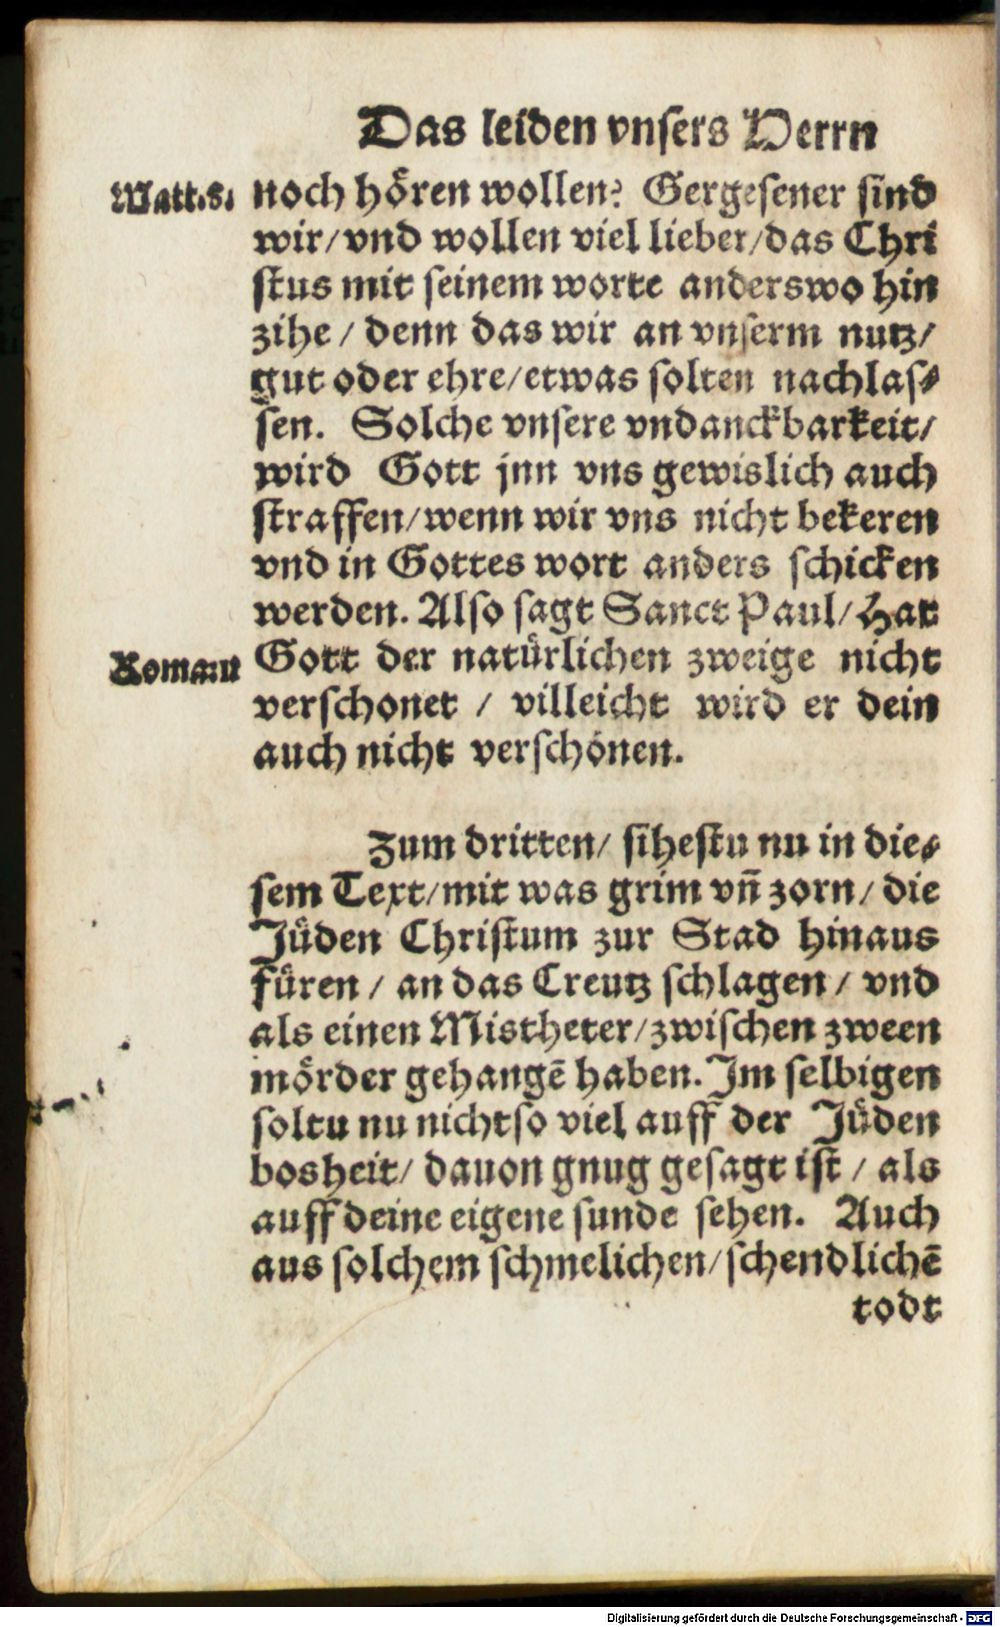 Das leiden vnsers Herrn
Matt.8. noch hören wollen? Gergesener sind
wir/vnd wollen viel lieber/das Chri
stus mit seinem worte anderswo hin
zihe / denn das wir an vnserm nutz/
gut oder ehre/etwas solten nachlas⸗
sen. Solche vnsere vndanckbarkeit/
wird Gott jnn vns gewislich auch
straffen/wenn wir vns nicht bekeren
vnd in Gottes wort anders schicken
werden. Also sagt Sanct Paul/Hat
Gott der natürlichen zweige nicht
verschonet / villeicht wird er dein
auch nicht verschönen.
Zum dritten/ sihestu nu in die⸗
sem Text/mit was grim vn̄ zorn/ die
Jüden Christum zur Stad hinaus
füren / an das Creutz schlagen/ vnd
als einen Mistheter/zwischen zween
mörder gehangē haben. Im selbigen
soltu nu nicht so viel auff der Jüden
bosheit/ dauon gnug gesagt ist / als
auff deine eigene sunde sehen. Auch
aus solchem schmelichen/schendlichē
todt
Digitalisierung gefördert durch die Deutsche Forschungsgemeinschaft - DFG